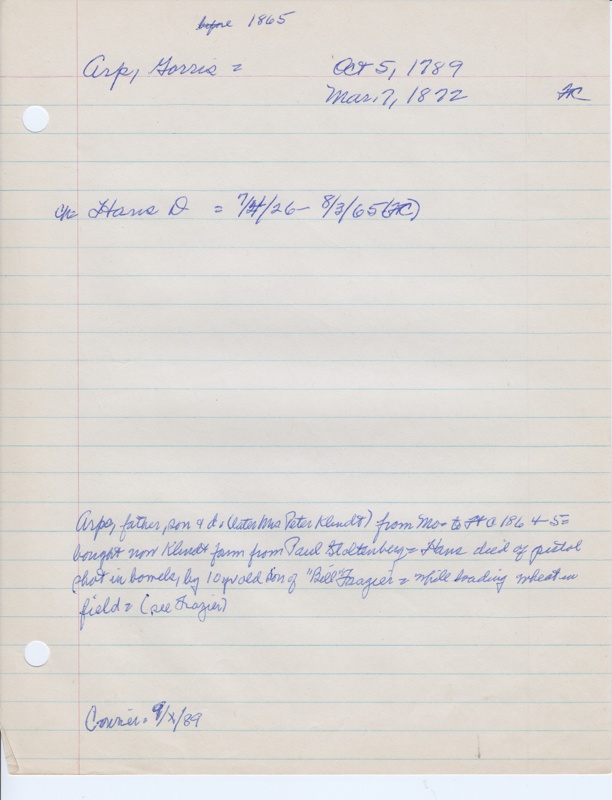 before 1865
Arp, Gorris = Oct 5, 1789
Mar. 7, 1872 HC
ch= Hans D = 7/4/26 - 8/3/65 (HC)
Arps, father, son & d. (later Mrs Peter Klindt) from Mo. to HC 1864-5=
bought now Klindt farm from Paul Stoltenberg = Hans died of pistol
shot in bowels, by 10 yr old son of "Bill" Frazier = while loading wheat in
field = (see Frazier)
Courier. 9/x/89